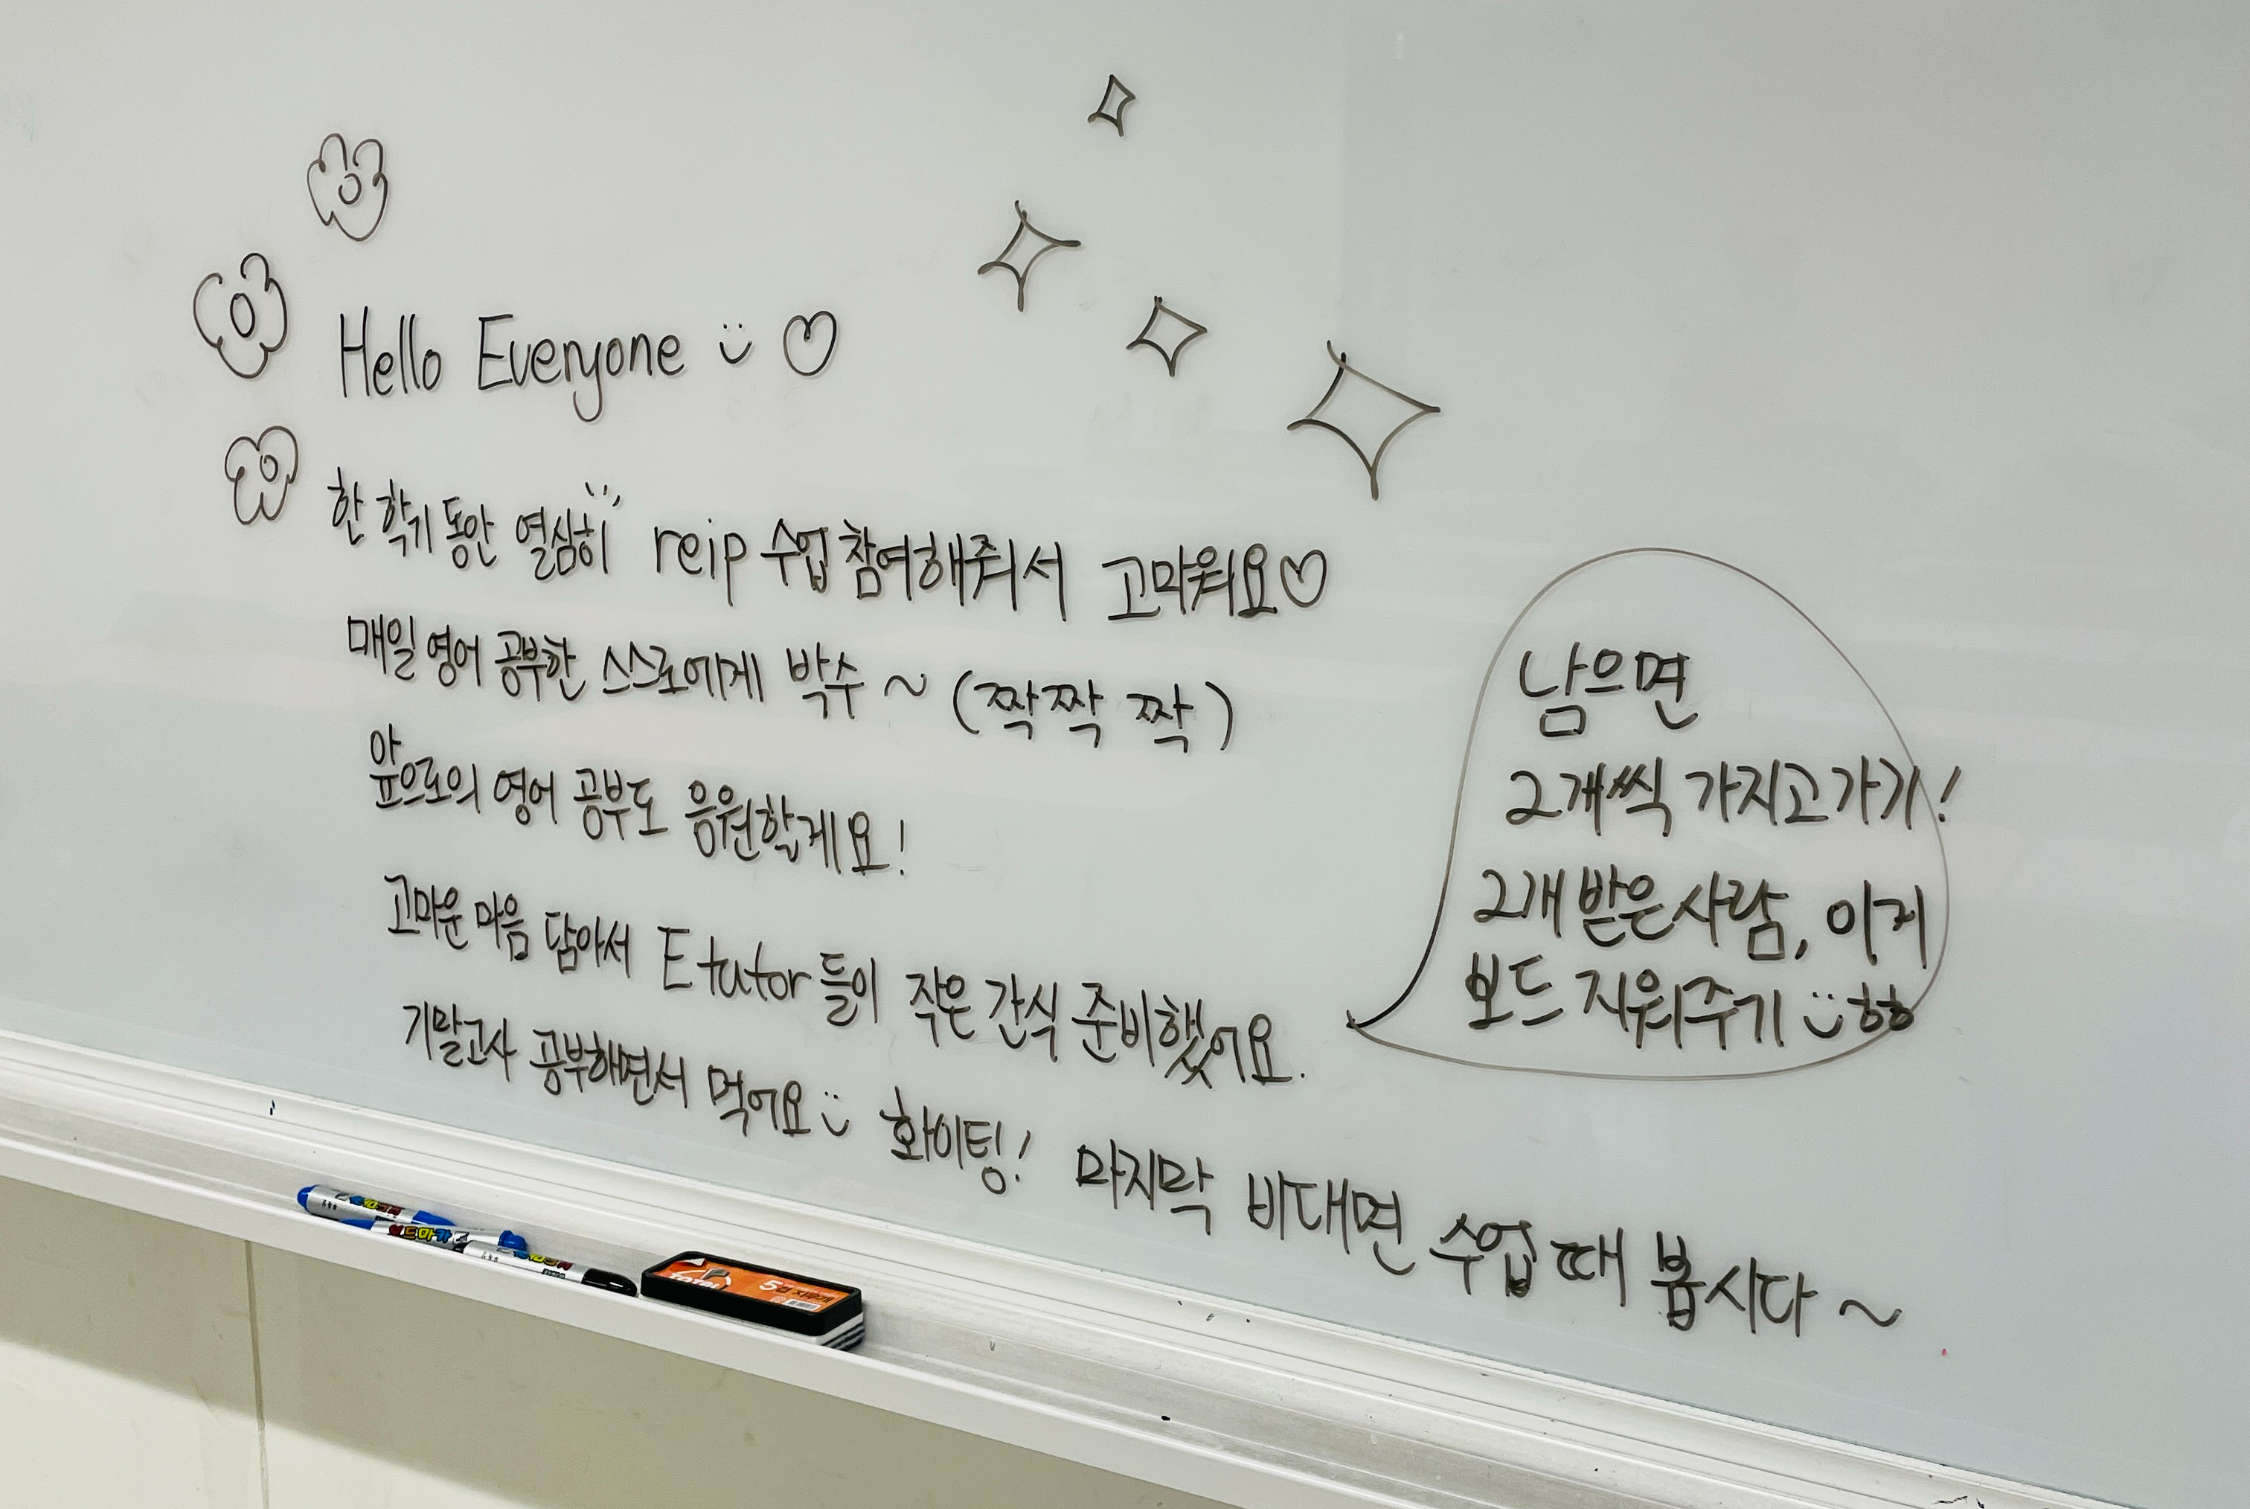 Hello Everyone
한 학기 동안 열심히 reip 수업 참여해줘서 고마워요♡
매일 영어 공부한 스스로에게 박수 ~ (짝짝 짝)
앞으로의 영어 공부도 응원할게요!
고마운 마음 담아서 E tutor들이 작은 간식 준비했어요.
기말고사 공부하면서 먹어요 화이팅! 마지막 비대면 수업 때 봅시다 ~
남으면
2개씩 가지고 가기!
2개 받은 사람, 이거
보드 지워주기 ㅎㅎ
보드마카